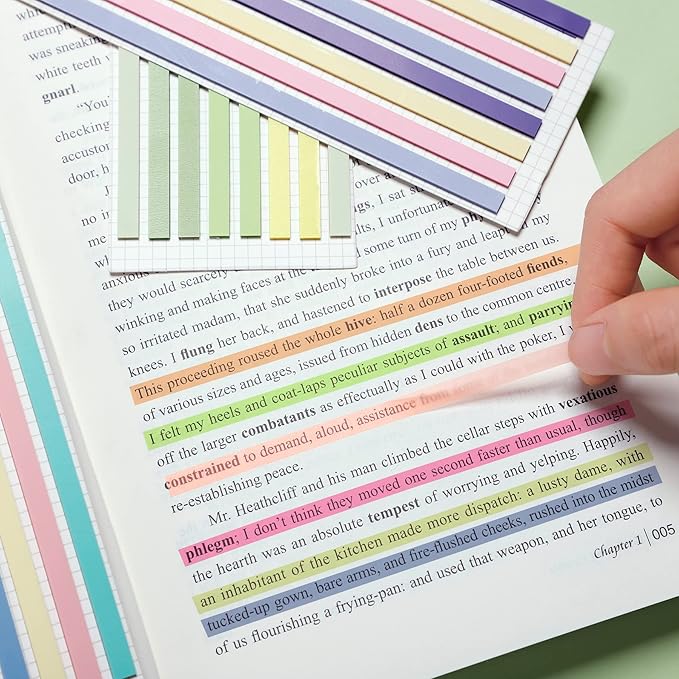 which
attempti
was sneaking
white teeth w
gnarl.
"You'
checking
accustor
door, h
over a
gs, I sat s
no in
ls, I unfortunate
me
some turn of my phy
anxious
they would scarcely
, that she suddenly broke into a fury and leap
my
winking and making faces at the
so irritated madam, that she suddenly broke into a fury and
knees. I flung her back, and hastened to interpose the table between us.
This proceeding roused the whole hive: half a dozen four-footed fiends,
of various sizes and ages, issued from hidden dens to the common centre.
I felt my heels and coat-laps peculiar subjects of assault; and parryin
off the larger combatants as effectually as I could with the poker, I
constrained to demand, aloud, assistance from
re-establishing peace.
Mr. Heathcliff and his man climbed the cellar steps with vexatious
phlegm; I don't think they moved one second faster than usual, though
the hearth was an absolute tempest of worrying and yelping. Happily,
an inhabitant of the kitchen made more dispatch: a lusty dame, with
tucked-up gown, bare arms, and fire-flushed cheeks, rushed into the midst
of us flourishing a frying-pan: and used that weapon, and her tongue, to
Chapter 1 | 005